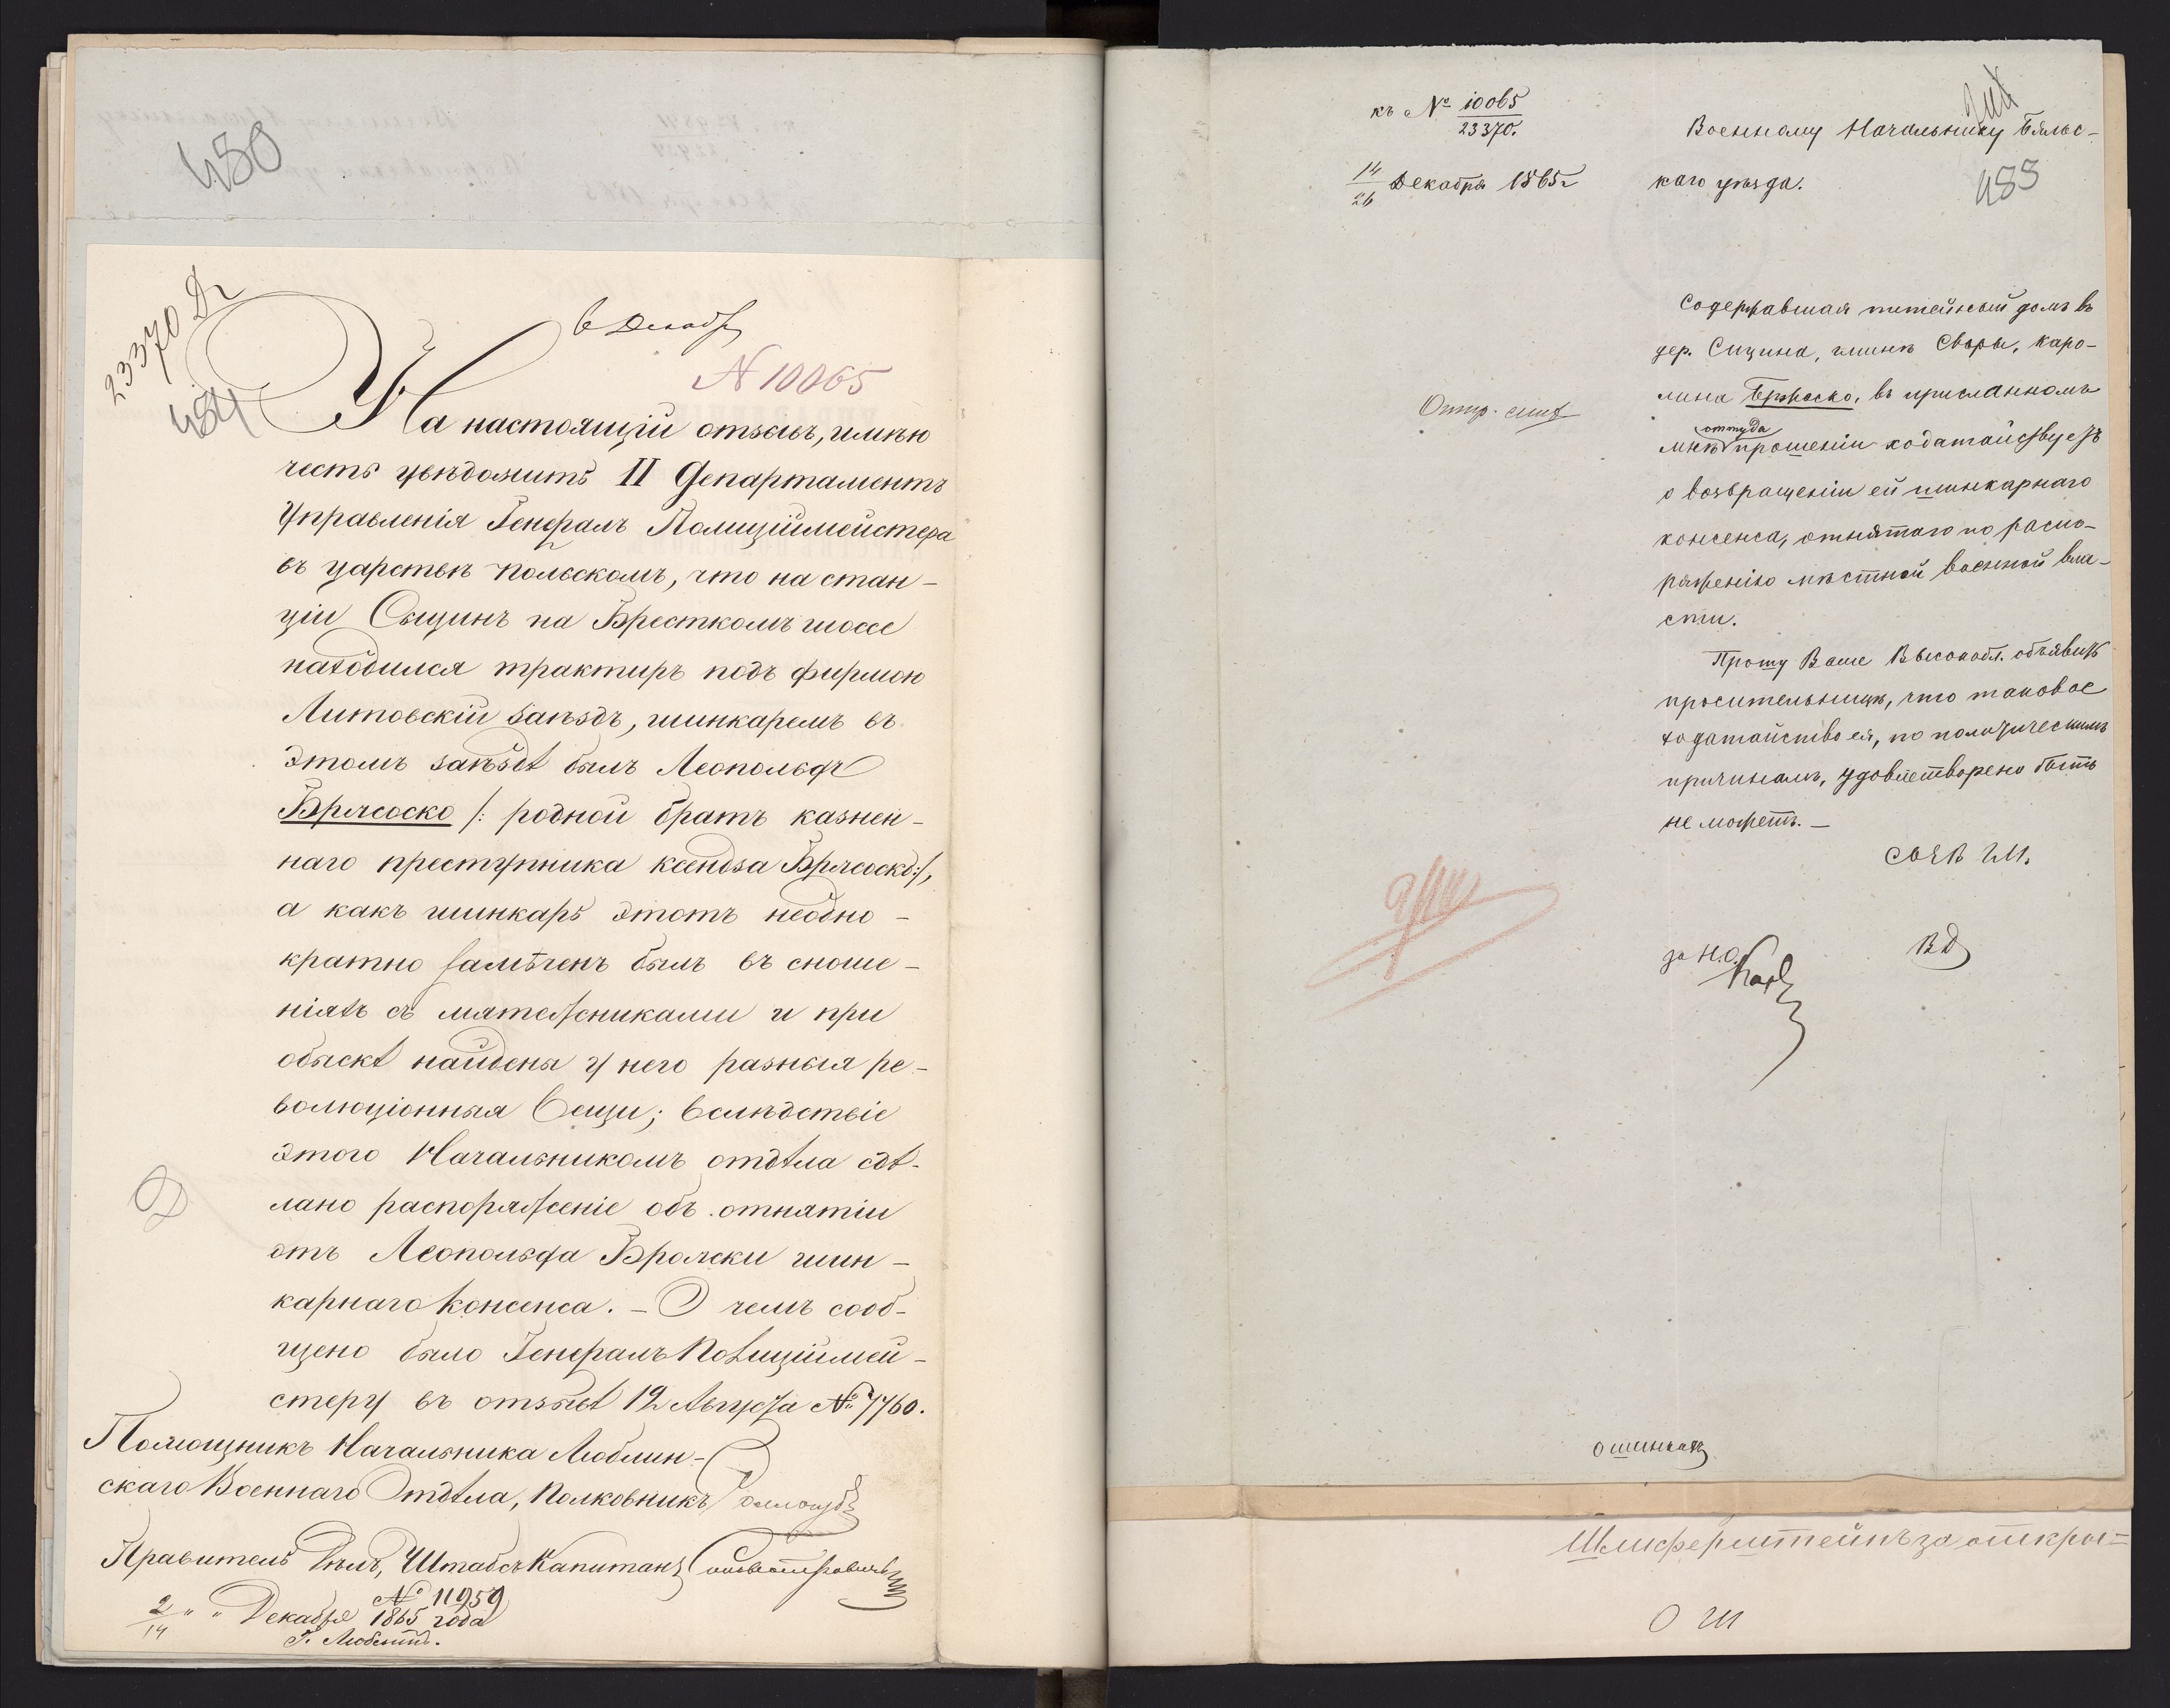 480
23370
484
6 Декабр
N 10065
На настоящій отзывъ, имѣю
честь увѣдомить II Департаментъ
Управленія Генералъ Полиціймейстера
въ царствѣ Польскомъ, что на стан-
ціи Сыцинъ на Бресткомъ шоссе
находился трактиръ подъ фирмою
Литовскій заѣздъ, шинкаремъ въ
этомъ заѣздѣ былъ Леопольдъ
Бржоско /: родной братъ казнен-
наго преступника ксендза Бржоско:/,
а какъ шинкарь этотъ неодно-
кратно замѣченъ былъ въ сноше-
ніяхъ съ мятежниками и при
обыскѣ найдены у него разныя ре-
волюціонныя вещи; вслѣдствіе
этого Начальникомъ отдѣла сдѣ-
лано распоряженіе объ отнятіи
отъ Леопольда Бржоски шин-
карнаго консенса. – О чемъ сооб-
щено было Генералъ Полиціймей-
стеру въ отзывѣ 12 Августа № 7760.
Помощникъ Начальника Люблин-
скаго Военнаго Отдѣла, Полковникъ
Правитель Дѣлъ, Штабсъ Капитанъ
№ 11959
2/14 " " Декабря 1865 года
Г. Люблинъ.
къ № 10065/23370.
14/26 Декабря 1865 г
Военному Начальнику Бяльс-
каго уѣзда.
483
Содержавшая питейный домъ въ
дер. Сицина, гминѣ Своры, Каро-
лина Бржоско, въ присланномъ
мнѣ оттуда прошеніи ходатайствуетъ
о возвращеніи ей шинкарнаго
консенса, отнятаго по распо-
ряженію мѣстной военной вла-
сти.
Прошу Ваше Высокобл. объявить
просительницѣ, что таковое
ходатайство ея, по политическимъ
причинамъ, удовлетворено быть
не можетъ. –
за Н.О.
ВД
О Ш